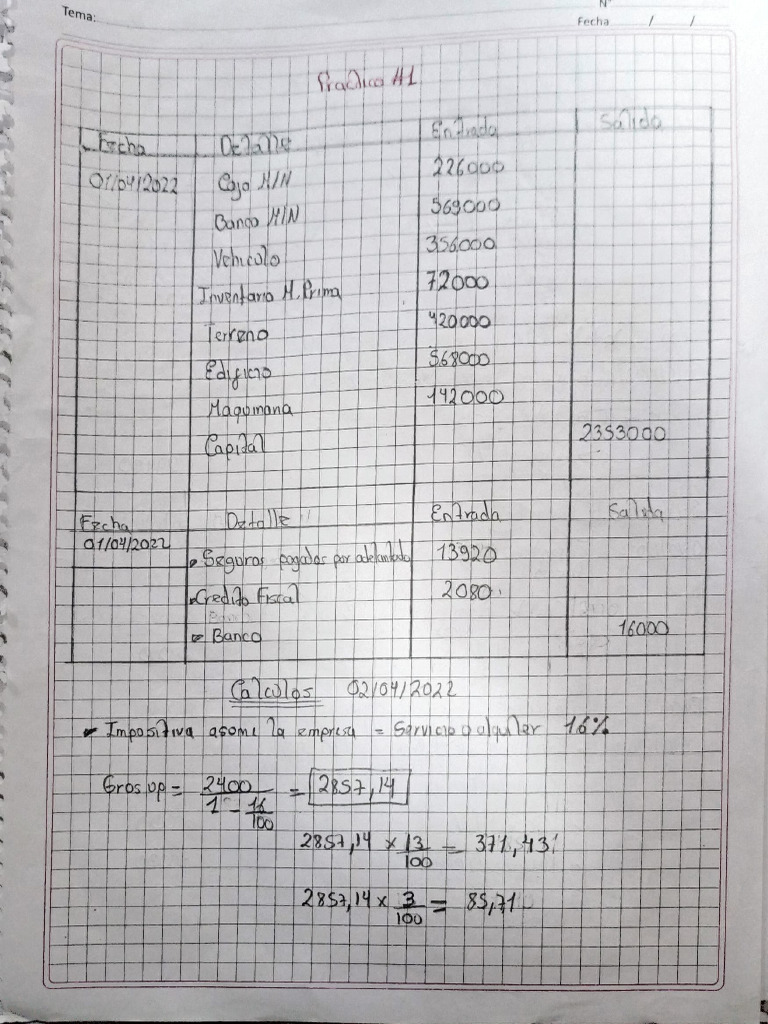 Tema:
N°
Fecha / /
Practico #1
Fecha Detalle Entrada Salida
01/04/2022 Caja M/N 226000
Banco M/N 569000
Vehiculo 356000
Inventario M. Prima 72000
Terreno 420000
Edificio 568000
Maquinaria 142000
Capital 2353000
Fecha Detalle Entrada Salida
01/04/2022
Seguros pagados por adelantado 13920
Credito Fiscal 2080
Banco 16000
Calculos 02/04/2022
Impositiva asume la empresa = Servicio o alquiler 16%
Gros up = 2400 / 1 - 16/100 = 2857,14
2857,14 x 13/100 = 371,43
2857,14 x 3/100 = 85,71